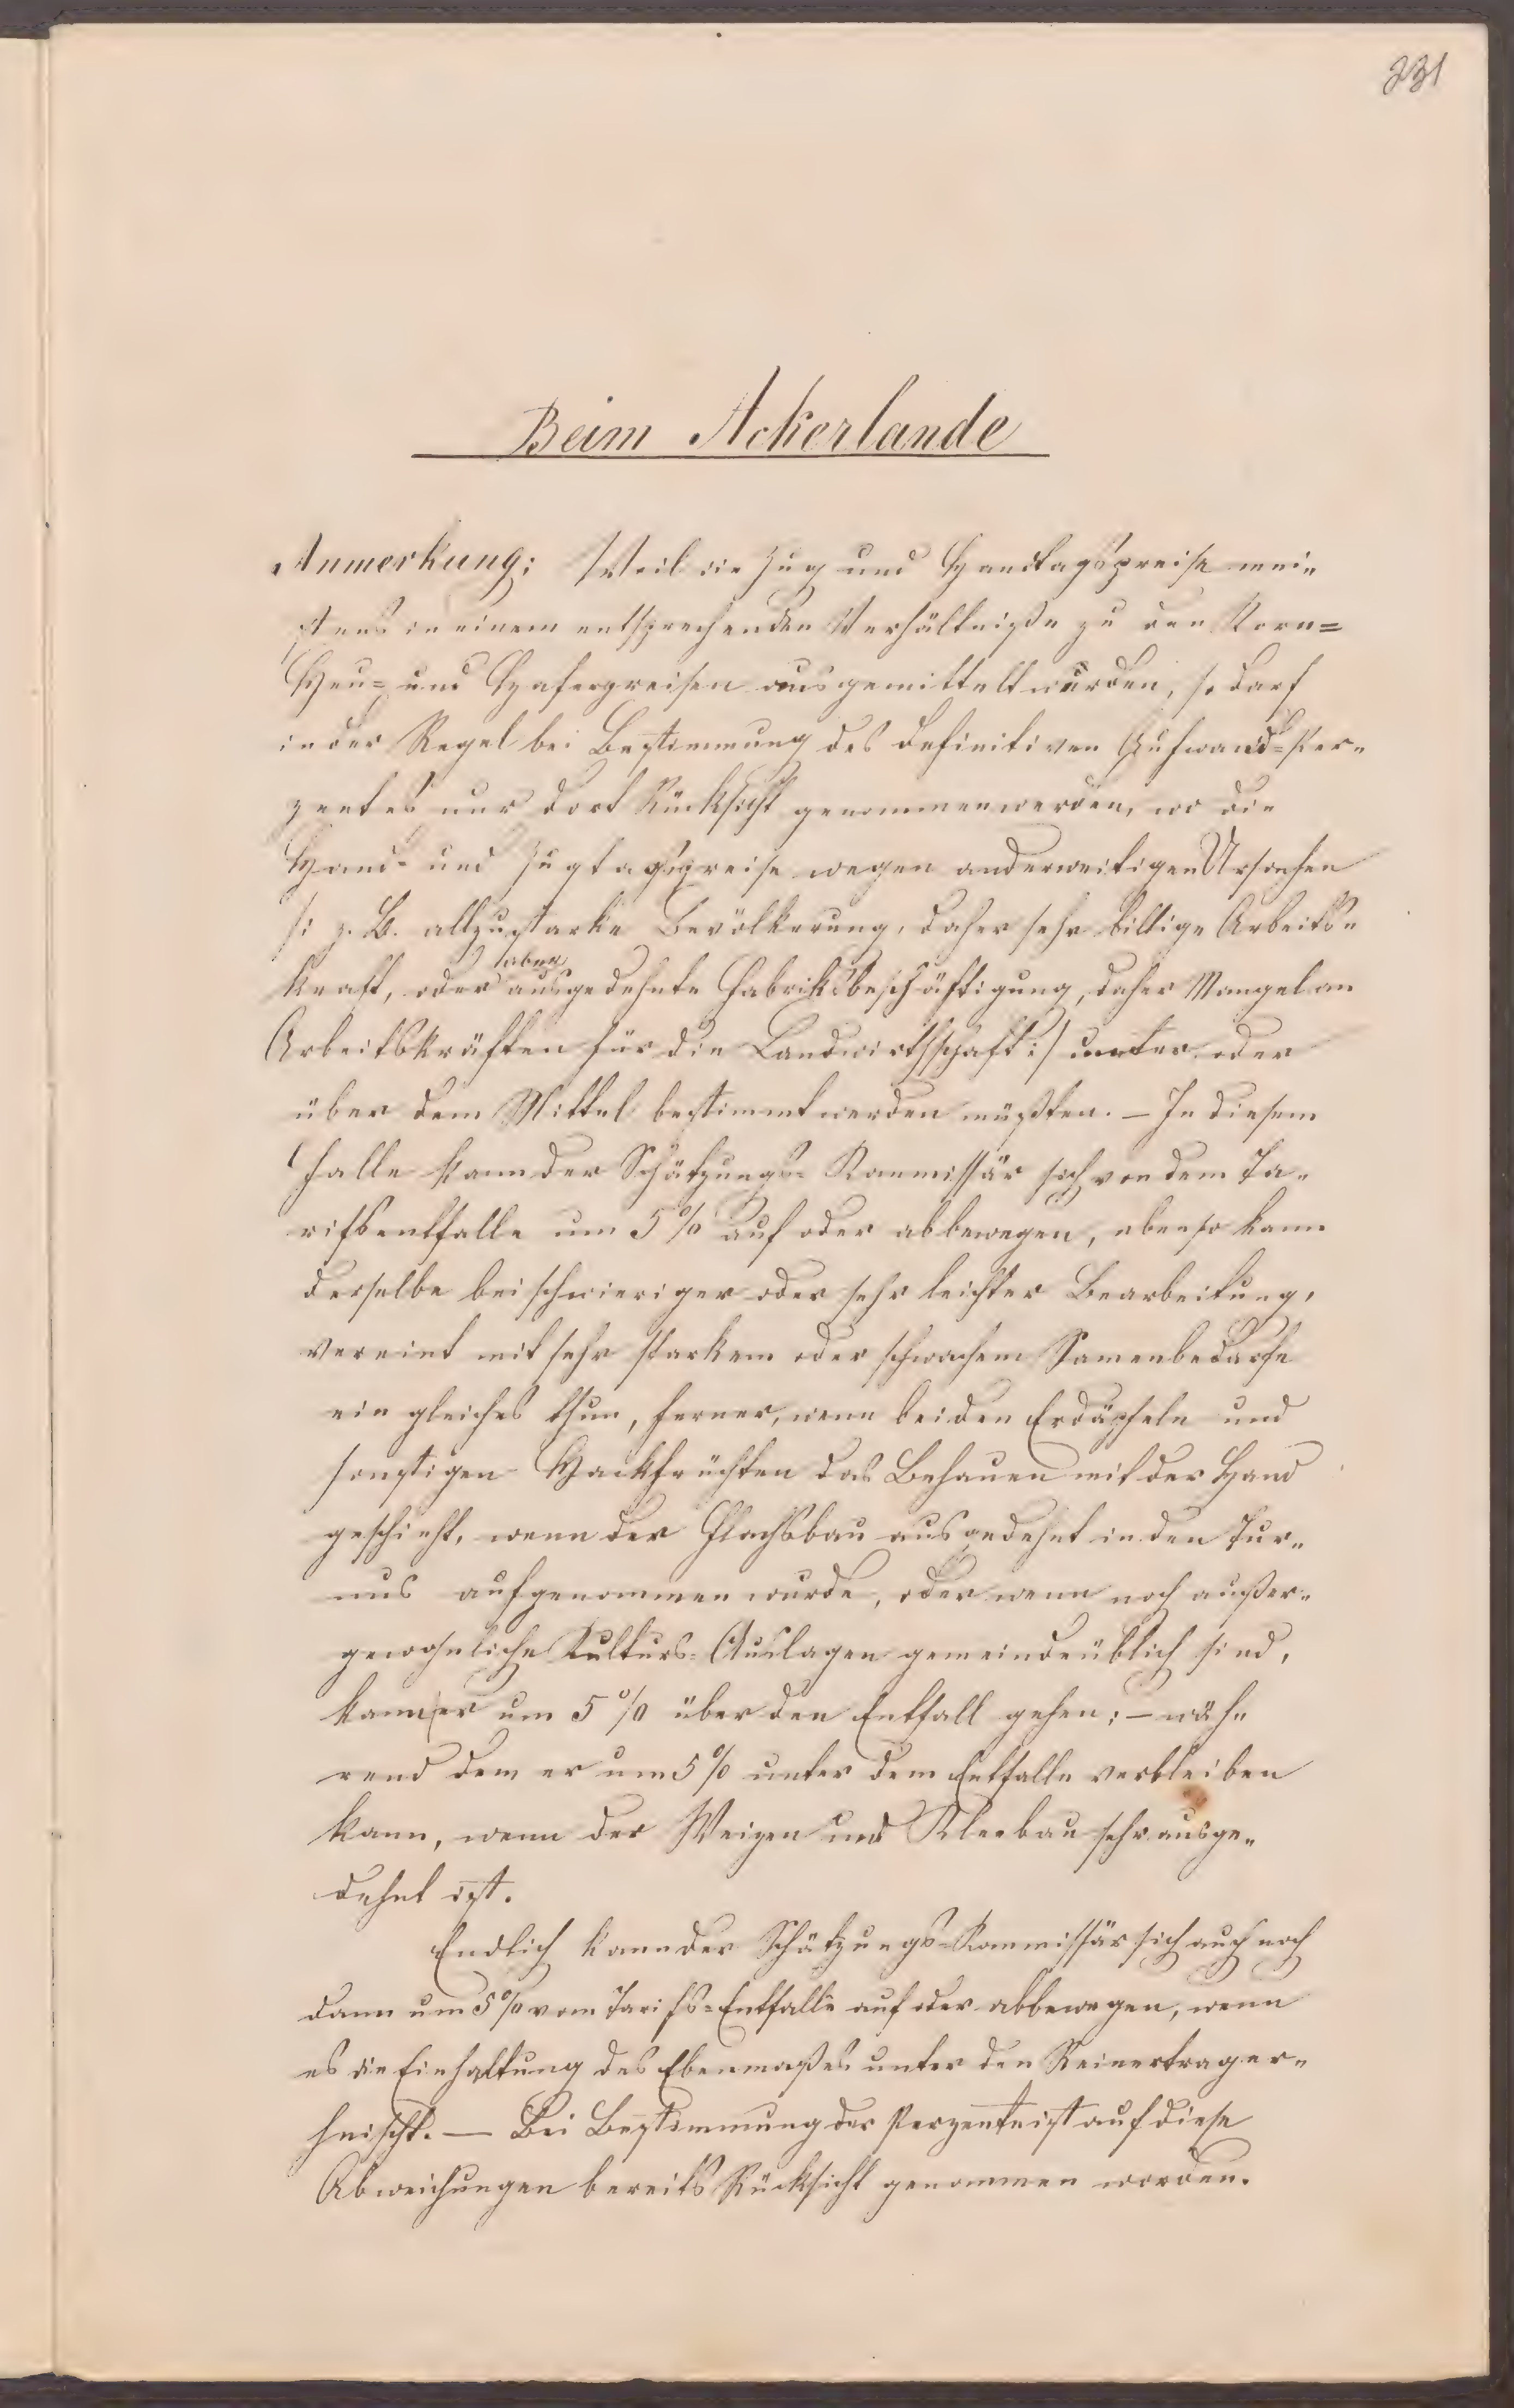 331
Beim Ackerlande
Anmerkung; Weil die Zug und Handtagspreise mei„
stens in einem entsprechenden Verhältniße zu den Korn=
Heu= und Haferpreisen ausgemittelt wurden, so darf
in der Regel bei Bestimmung des definitiven Aufwand=Per„
zentes nur dort Rücksicht genommen werden, wo die
Hand= und Zugtagspreise wegen anderweitigen Ursachen
/: z. B. allzustarke Bevölkerung, daher sehr billige Arbeits„
kraft, oder aber ausgedehnte Fabriksbeschäftigung, daher Mangel an
Arbeitskräften für die Landwirthschaft :/ unter oder
über dem Mittel bestimmt werden müßten. — In diesem
Falle kann der Schätzungs= Kommissär sich von dem Ta„
rifsentfalle um 5 % auf oder abbewegen, ebenso kann
derselbe bei schwieriger oder sehr leichter Bearbeitung,
vereint mit sehr starkem oder schwachem Samenbedarfe
ein gleiches thun, ferner, wenn bei den Erdäpfeln und
sonstigen Hackfrüchten das Behauen mit der Hand
geschieht, wenn der Flachsbau ausgedehnt in den Tur„
nus aufgenommen wurde, oder wenn noch außer„
gewöhnliche Kulturs=Auslagen gemeindeüblich sind,
kann er um 5 % über den Entfall gehen; — wäh„
rend dem er um 5 % unter dem Entfalle verbleiben
kann, wenn der Weizen und Kleebau sehr ausge„
dehnt ist.
Endlich kann der Schätzungs=Kommissär sich auch noch
dann um 5 % vom Tarifs=Entfalle auf oder abbewegen, wenn
es die Einhaltung des Ebenmaßes unter den Reinertrag er„
heischt. — Bei Bestimmung der Perzente ist auf diese
Abweichungen bereits Rücksicht genommen worden.